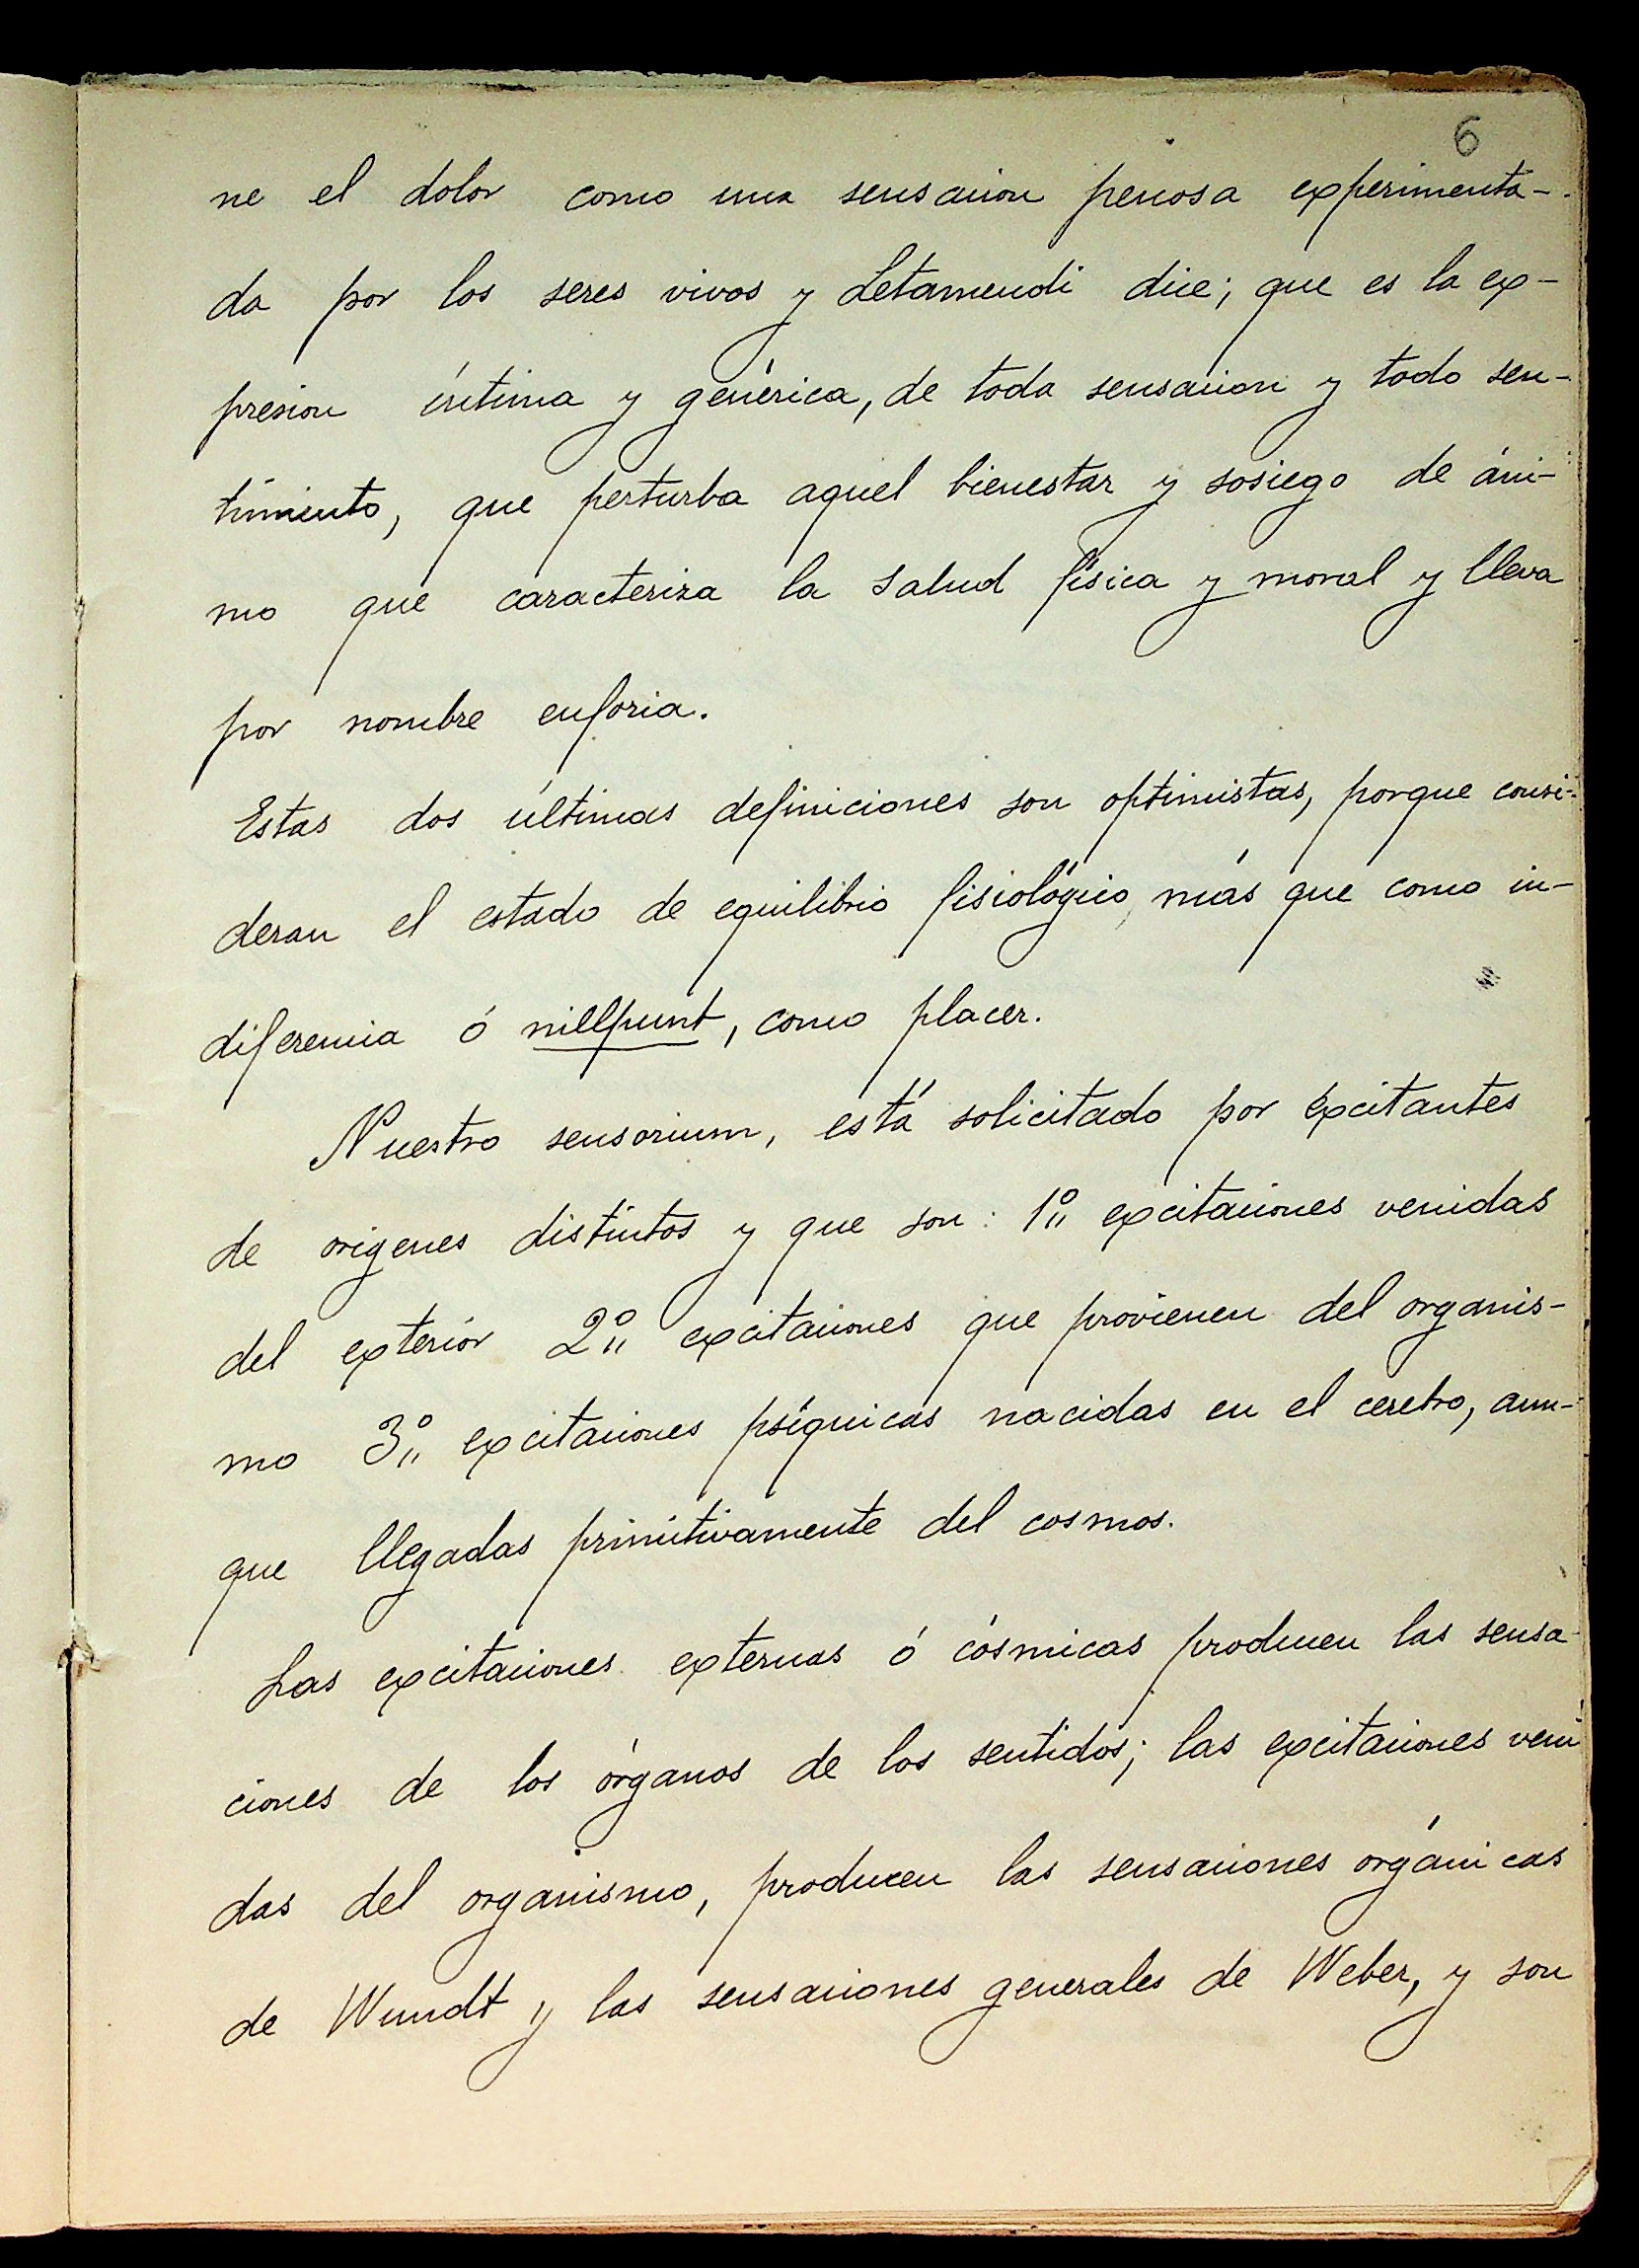 6
ne el dolor como una sensacion penosa experimenta-
da por los seres vivos y Letamendi dice; que es la ex-
presion íntima y genérica, de toda sensacion y todo sen-
timiento, que perturba aquel bienestar y sosiego de áni-
mo que caracteriza la salud física y moral y lleva
por nombre euforia.
Estas dos últimas definiciones son optimistas, porque consi-
deran el estado de equilibrio fisiológico, más que como in-
diferencia ó nillpunt, como placer.
Nuestro sensorium, está solicitado por excitantes
de origenes distintos y que son: 1º excitaciones venidas
del exterior 2º excitaciones que provienen del organis-
mo 3º excitaciones psíquicas nacidas en el cerebro, aun-
que llegadas primitivamente del cosmos.
Las excitaciones externas ó cósmicas producen las sensa-
ciones de los órganos de los sentidos; las excitaciones veni
das del organismo, producen las sensaciones orgánicas
de Wundt y las sensaciones generales de Weber, y son